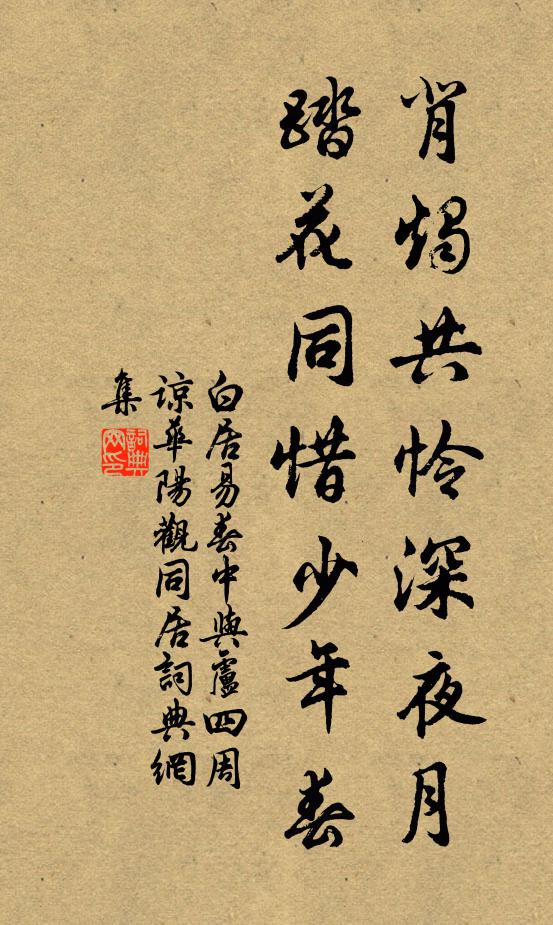 背燭共怜深夜月
踏花同惜少年春
白居易春中與盧四周
諒華陽觀同居詞典網
集
詞典
网印